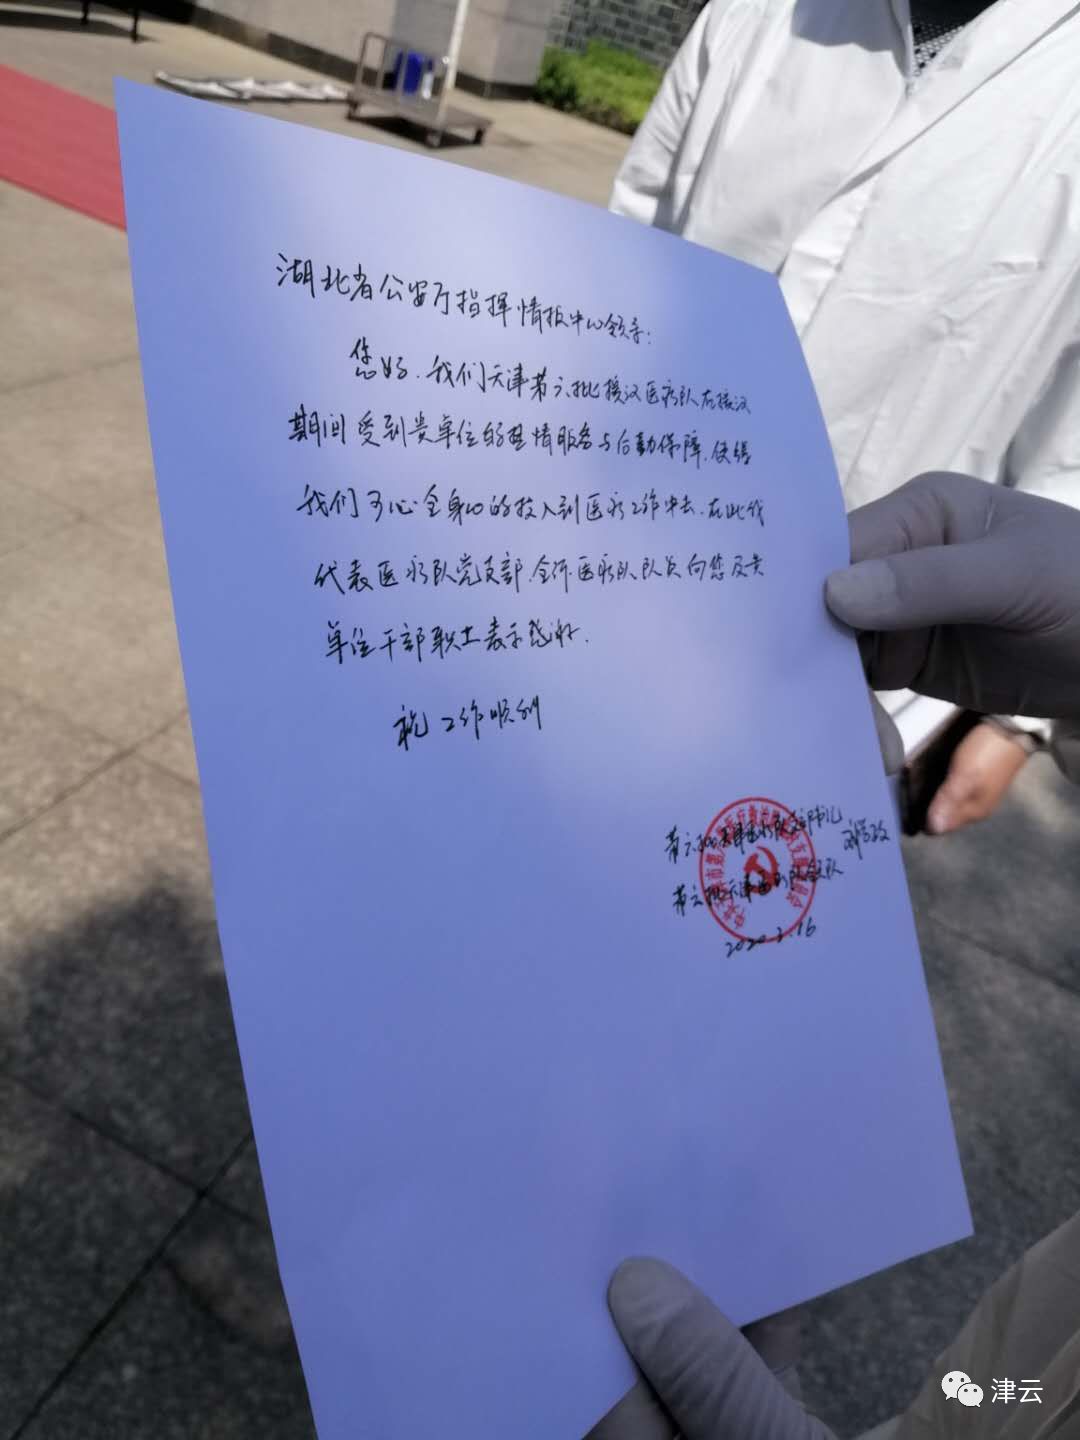 湖北省公安厅指挥情报中心领导:
您好.我们天津第六批援汉医疗队在援汉
期间受到贵单位的热情服务与后勤保障.使得
我们可心全身心的投入到医疗工作中去.在此我
代表医疗队党支部.全体医疗队队员向您及贵
单位干部职工表示感谢.
祝工作顺利
第六批天津医疗队支部书记
第六批天津医疗队领队
2020.3.16
津云